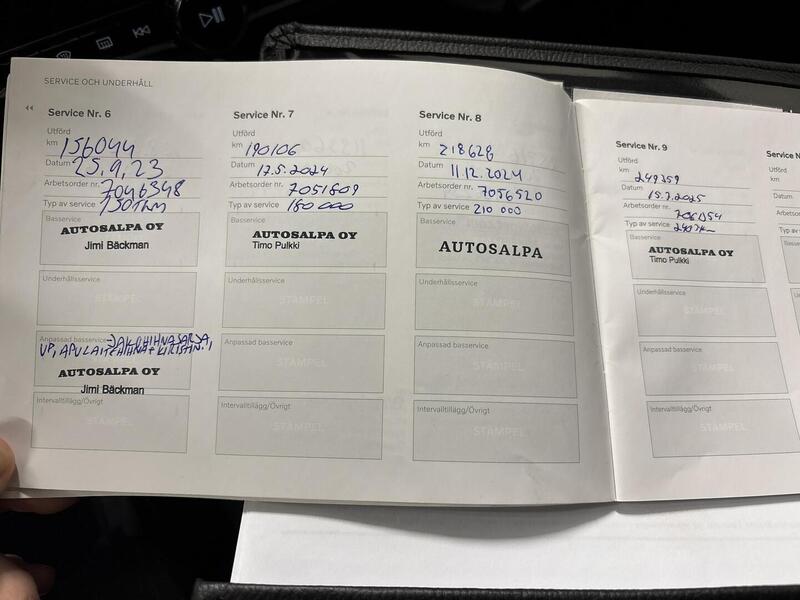 SERVICE OCH UNDERHÅLL
Service Nr. 6
Utförd
km 156044
Datum 25.9.23
Arbetsorder nr. 7046848
Typ av service 150Tkm
Basservice
AUTOSALPA OY
Jimi Bäckman
Underhållsservice
STÄMPEL
Anpassad basservice JAKOHIHNASARJA,
VP, APULAITEHIHNA + KIRISTIN.
AUTOSALPA OY
Jimi Bäckman
Intervalltillägg/Övrigt
STÄMPEL
Service Nr. 7
Utförd
km 190106
Datum 17.5.2024
Arbetsorder nr. 7051809
Typ av service 180 000
Basservice
AUTOSALPA OY
Timo Pulkki
Underhållsservice
STÄMPEL
Anpassad basservice
STÄMPEL
Intervalltillägg/Övrigt
STÄMPEL
Service Nr. 8
Utförd
km 218628
Datum 11.12.2024
Arbetsorder nr. 7056520
Typ av service 210 000
Basservice
AUTOSALPA
Underhållsservice
STÄMPEL
Anpassad basservice
STÄMPEL
Intervalltillägg/Övrigt
STÄMPEL
Service Nr. 9
Utförd
km 249759
Datum 15.7.2025
Arbetsorder nr.
Typ av service 240Tkm
Basservice
AUTOSALPA OY
Timo Pulkki
Underhållsservice
STÄMPEL
Anpassad basservice
STÄMPEL
Intervalltillägg/Övrigt
STÄMPEL
Service N
Utförd
km
Datum
Arbetsor
Typ av s
Basse